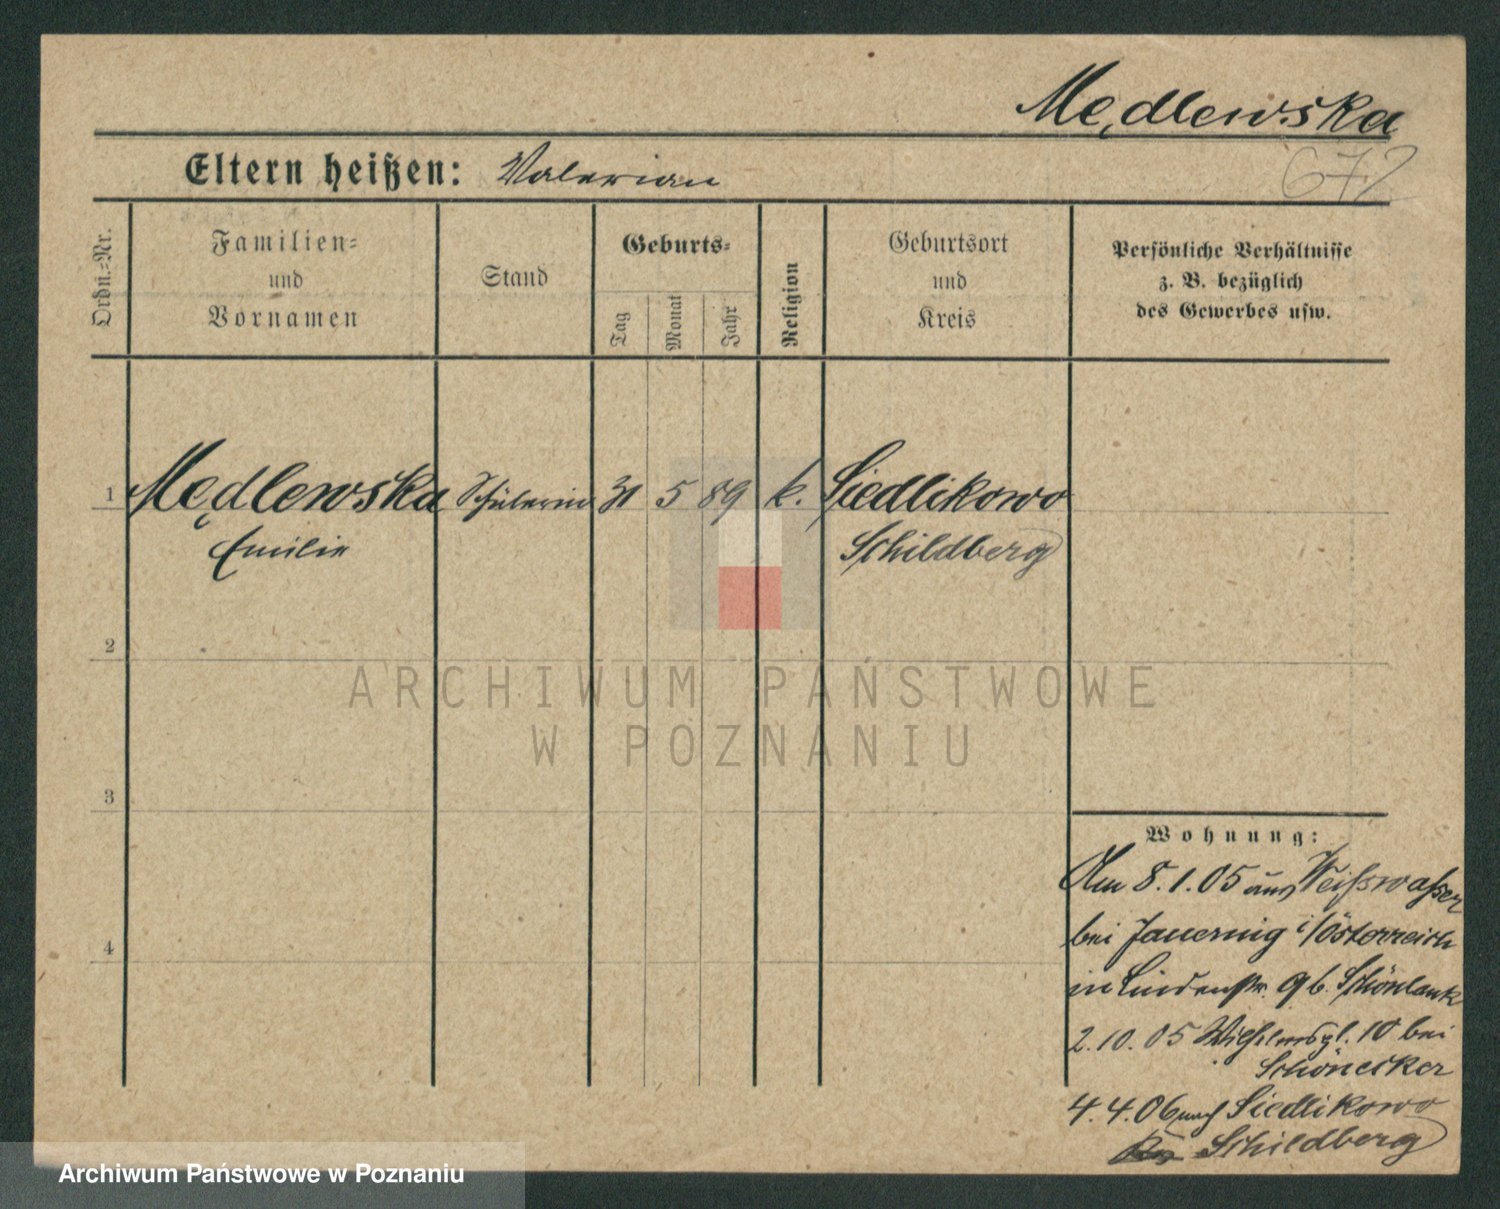 Mędlewska
672
Eltern heißen: Valerian
Ordn.-Nr.
Familien-
und
Vornamen
Stand
Geburts-
Tag
Monat
Jahr
Religion
Geburtsort
und
Kreis
Persönliche Verhältnisse
z. B. bezüglich
des Gewerbes usw.
1 Mędlewska Schülerin 31 5 89 k. Siedlikowo
Emilie Schildberg
2
ARCHIWUM PAŃSTWOWE
W POZNANIU
3
Wohnung:
Am 8.1.05 aus Weißwasser
bei Jauernig i/Österreich
4
in Lindenstr. 9 b. Schönlank
2.10.05 Wilhelmspl. 10 bei
Schönecker
4.4.06 nach Siedlikowo
Schildberg
Archiwum Państwowe w Poznaniu